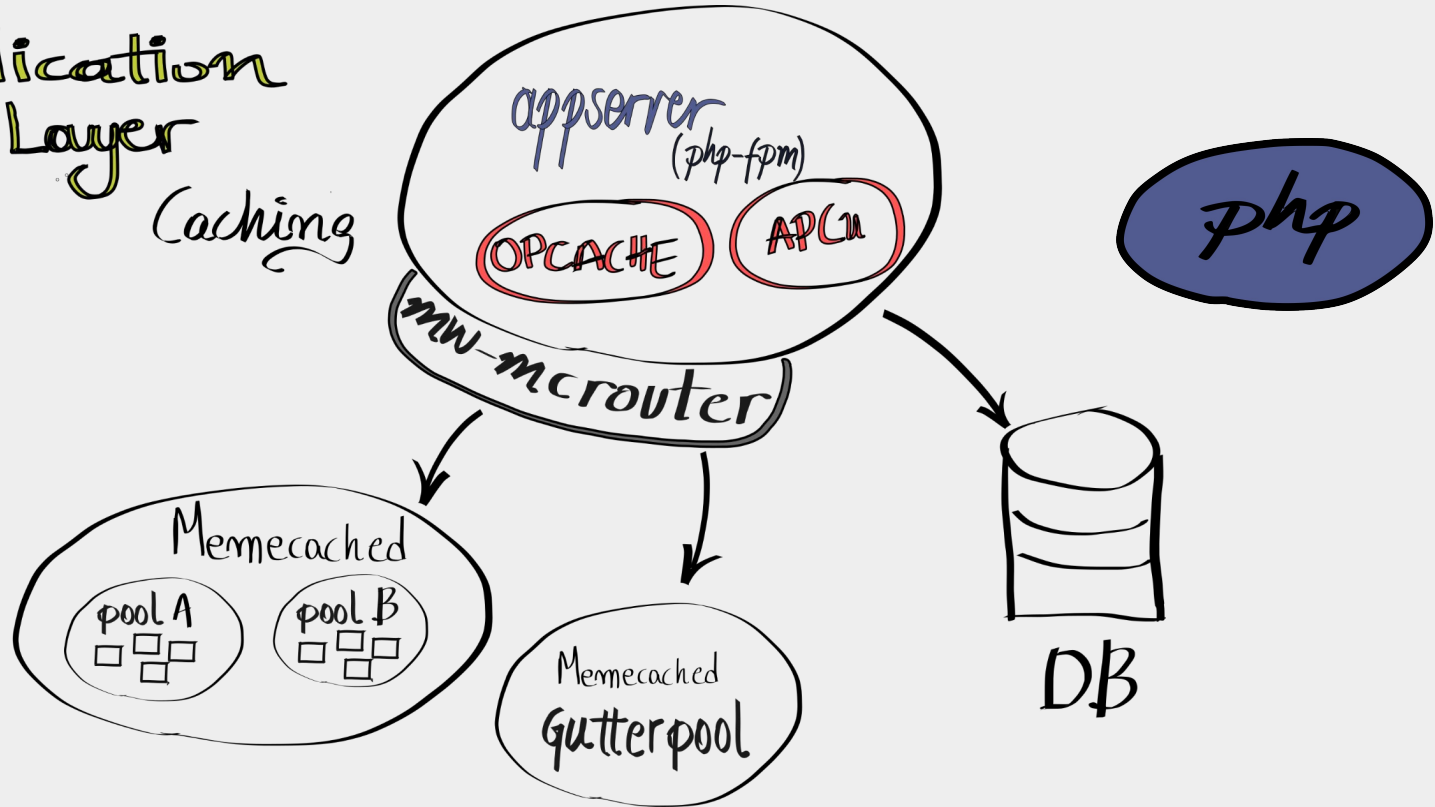 lication
Layer
Caching
appserver
(php-fpm)
OPCACHE
APCu
php
mw-mcrouter
Memecached
pool A
pool B
Memecached
Gutterpool
DB